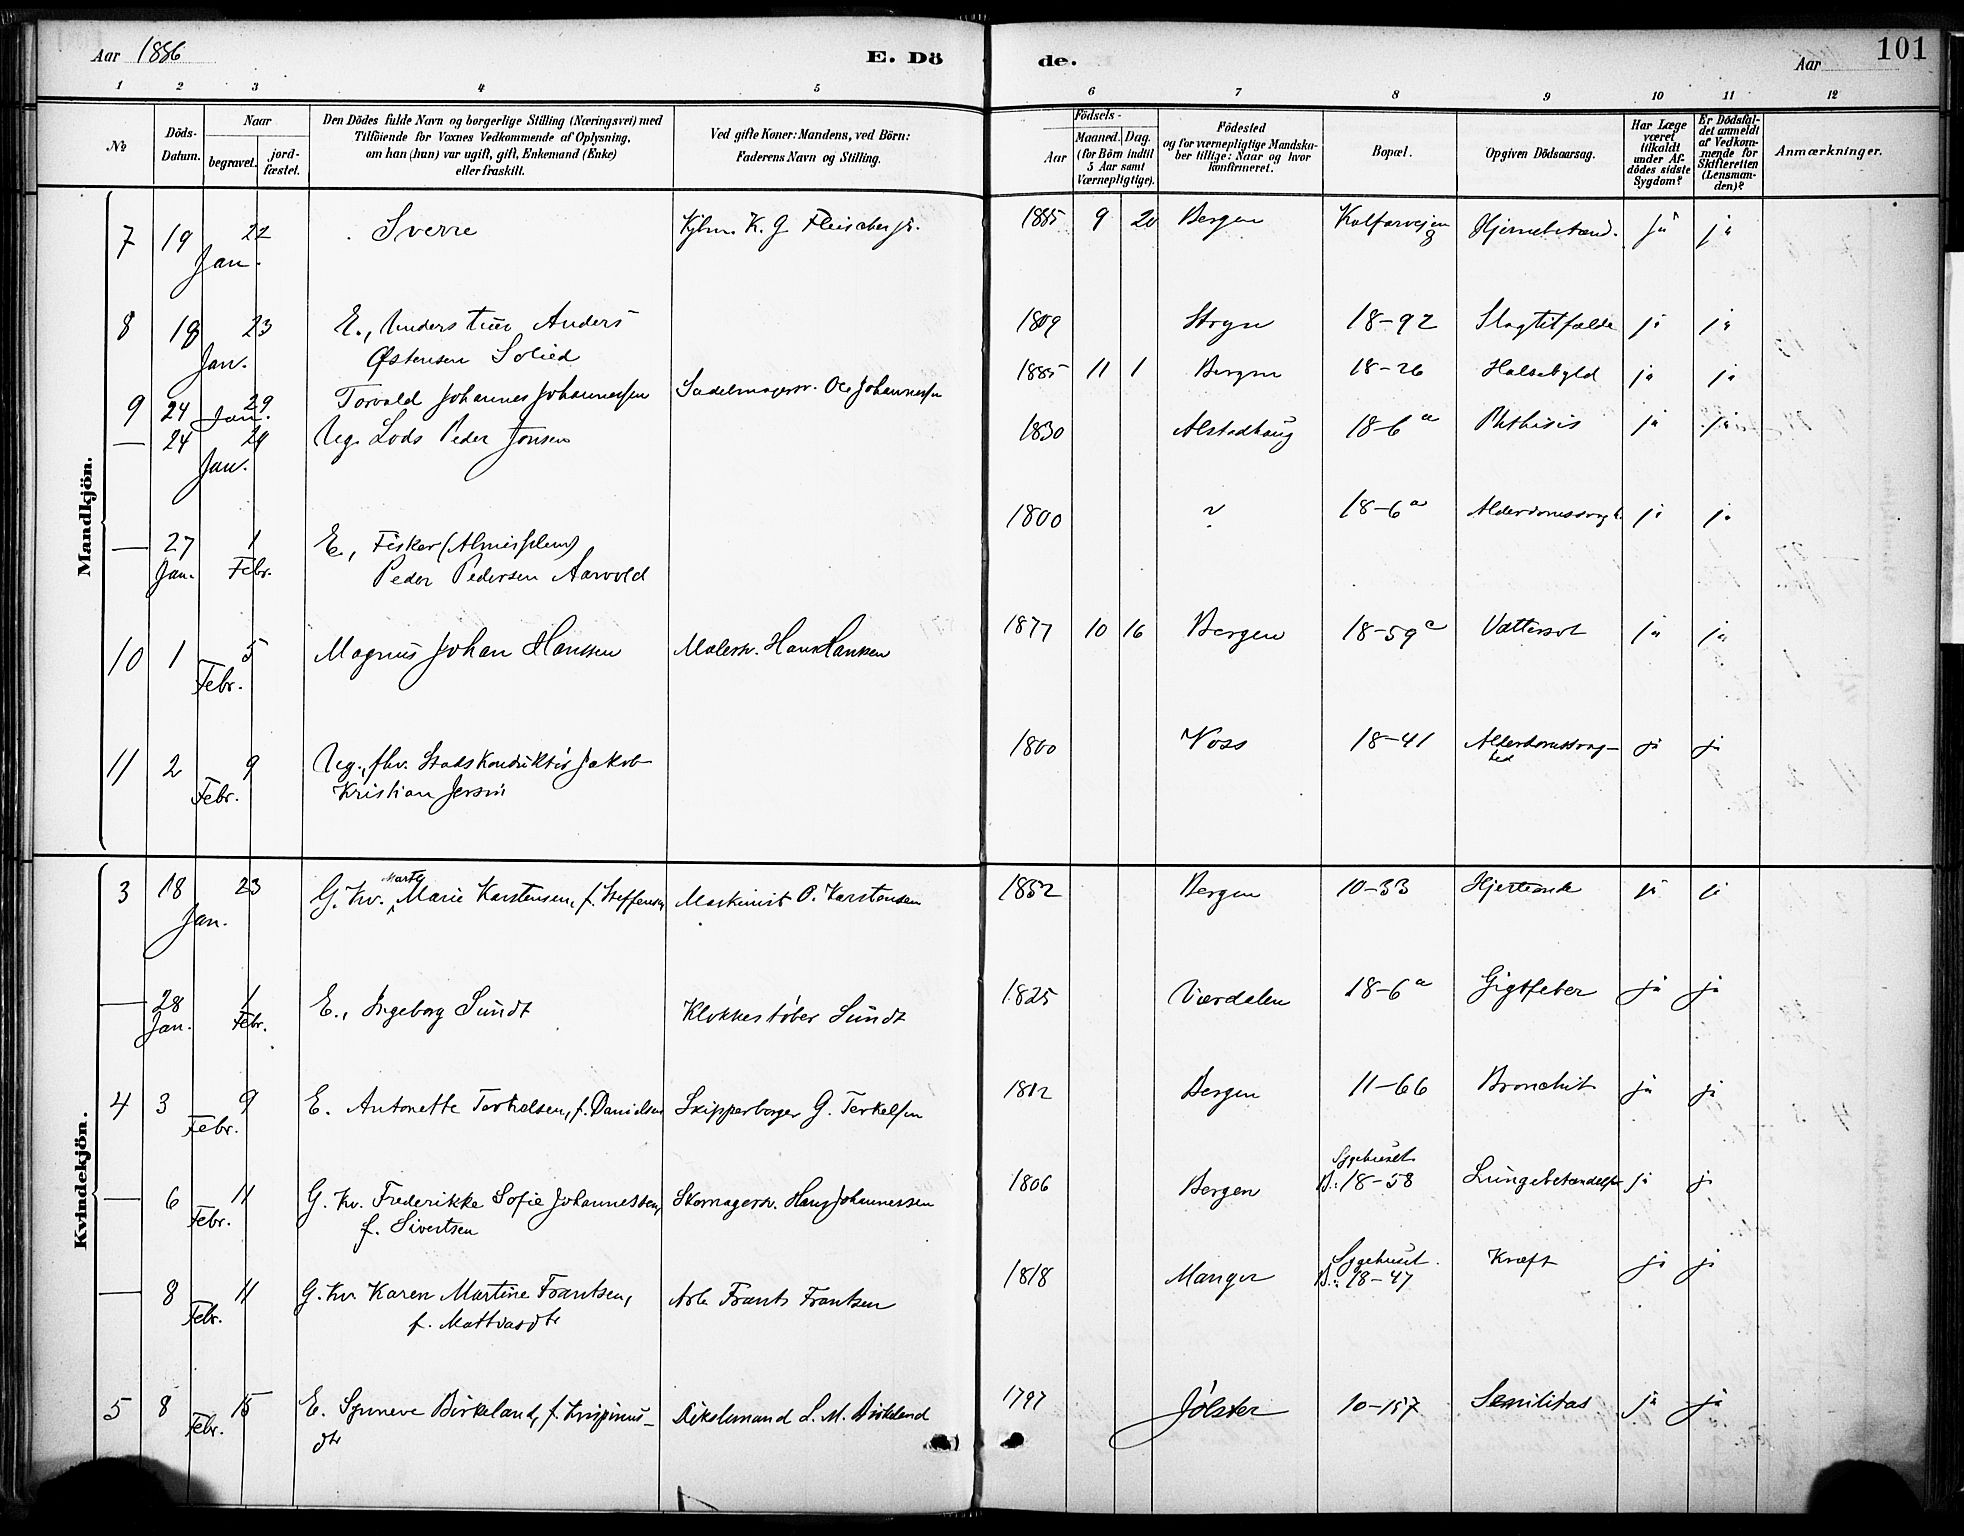 Aar 1886 E. Dö de. Aar 101
1 2 3 4 5 6 7 8 9 10 11 12
№ Döds-Datum. Naar begravet. jord-fæstet. Den Dödes fulde Navn og borgerlige Stilling (Næringsvei) med Tilföiende for Voxnes Vedkommende af Oplysning, om han (hun) var ugift, gift, Enkemand (Enke) eller fraskilt. Ved gifte Koner: Mandens, ved Börn: Faderens Navn og Stilling. Födsels- Aar Maaned. Dag. (for Börn indtil 5 Aar samt Værnepligtige). Födested og for værnepligtige Mandskaber tillige: Naar og hvor konfirmeret. Bopæl. Opgiven Dödsaarsag. Har Læge været tilkaldt under Afdödes sidste Sygdom? Er Dödsfaldet anmeldt af Vedkommende for Skifteretten (Lensmanden)? Anmærkninger.
Mandkjön.
7 19 22 Sverre Kjbm. K. G. Fleischer jr. 1885 9 20 Bergen Kalfarvejen 8 Hjernebetænd. ja ja
Jan.
8 18 23 E., Anders 1809 Stryn 18-92 Slagtilfælde ja ja
Jan. Østensen
9 24 29 Torvald Johannes Johannessen Sadelmagersv. Ole Johannessen 1885 11 1 Bergen 18-26 Halsebyld ja ja
Jan.
— 24 29 Ug. Lods Peder Jonsen 1830 Alstadhaug 18-6a Phthisis ja ja
Jan.
— 27 1 E., Fisker (Almisselem) 1800 ? 18-6a ja ja
Jan. Febr. Peder Pedersen Aarvold
10 1 5 Magnus Johan Hanssen Malersv. Hans Hanssen 1877 10 16 Bergen 18-59a Vattersot ja ja
Febr.
11 2 9 Ug., fhv. Stadskonduktør Jakob 1800 Voss 18-41 Alderdomssvag- ja ja
Febr. Kristian Jersin hed
Kvindekjön.
3 18 23 G. Kv. Marthe Marie Karstensen, f. Steffensen Maskinist O. Karstensen 1852 Bergen 10-33 Hjerteonde ja ja
Jan.
— 28 1 E., Ingeborg Sundt Klokkestøber Sundt 1825 Værdalen 18-6a Gigtfeber ja ja
Jan. Febr.
4 3 9 E. Antonette Terkelsen, f. Danielsen Skipperborger G. Terkelsen 1812 Bergen 11-66 Bronchit ja ja
Febr.
— 6 11 G. Kv. Frederikke Sofie Johannessen, Skomagersv. Hans Johannessen 1806 Bergen Sygehuset B.: 18-58 Lungebetændelse ja ja
Febr. f. Sivertsen
— 8 11 G. Kv. Karen Martine Frantsen, Arb. Frants Frantsen 1818 Manger Sygehuset. B.: 18-47 Kræft ja ja
Febr. f. Mattiasdtr
5 8 15 E. Synneve Birkeland, f. Krispinus- L. M. Birkeland 1797 Jölster 10-157 Senilitas ja ja
Febr. dtr